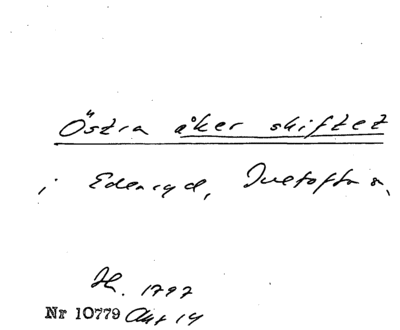 Östra åker skiftet
i Edenryd, Ivetofta s.
H. 1797
Nr 10779 Akt 14